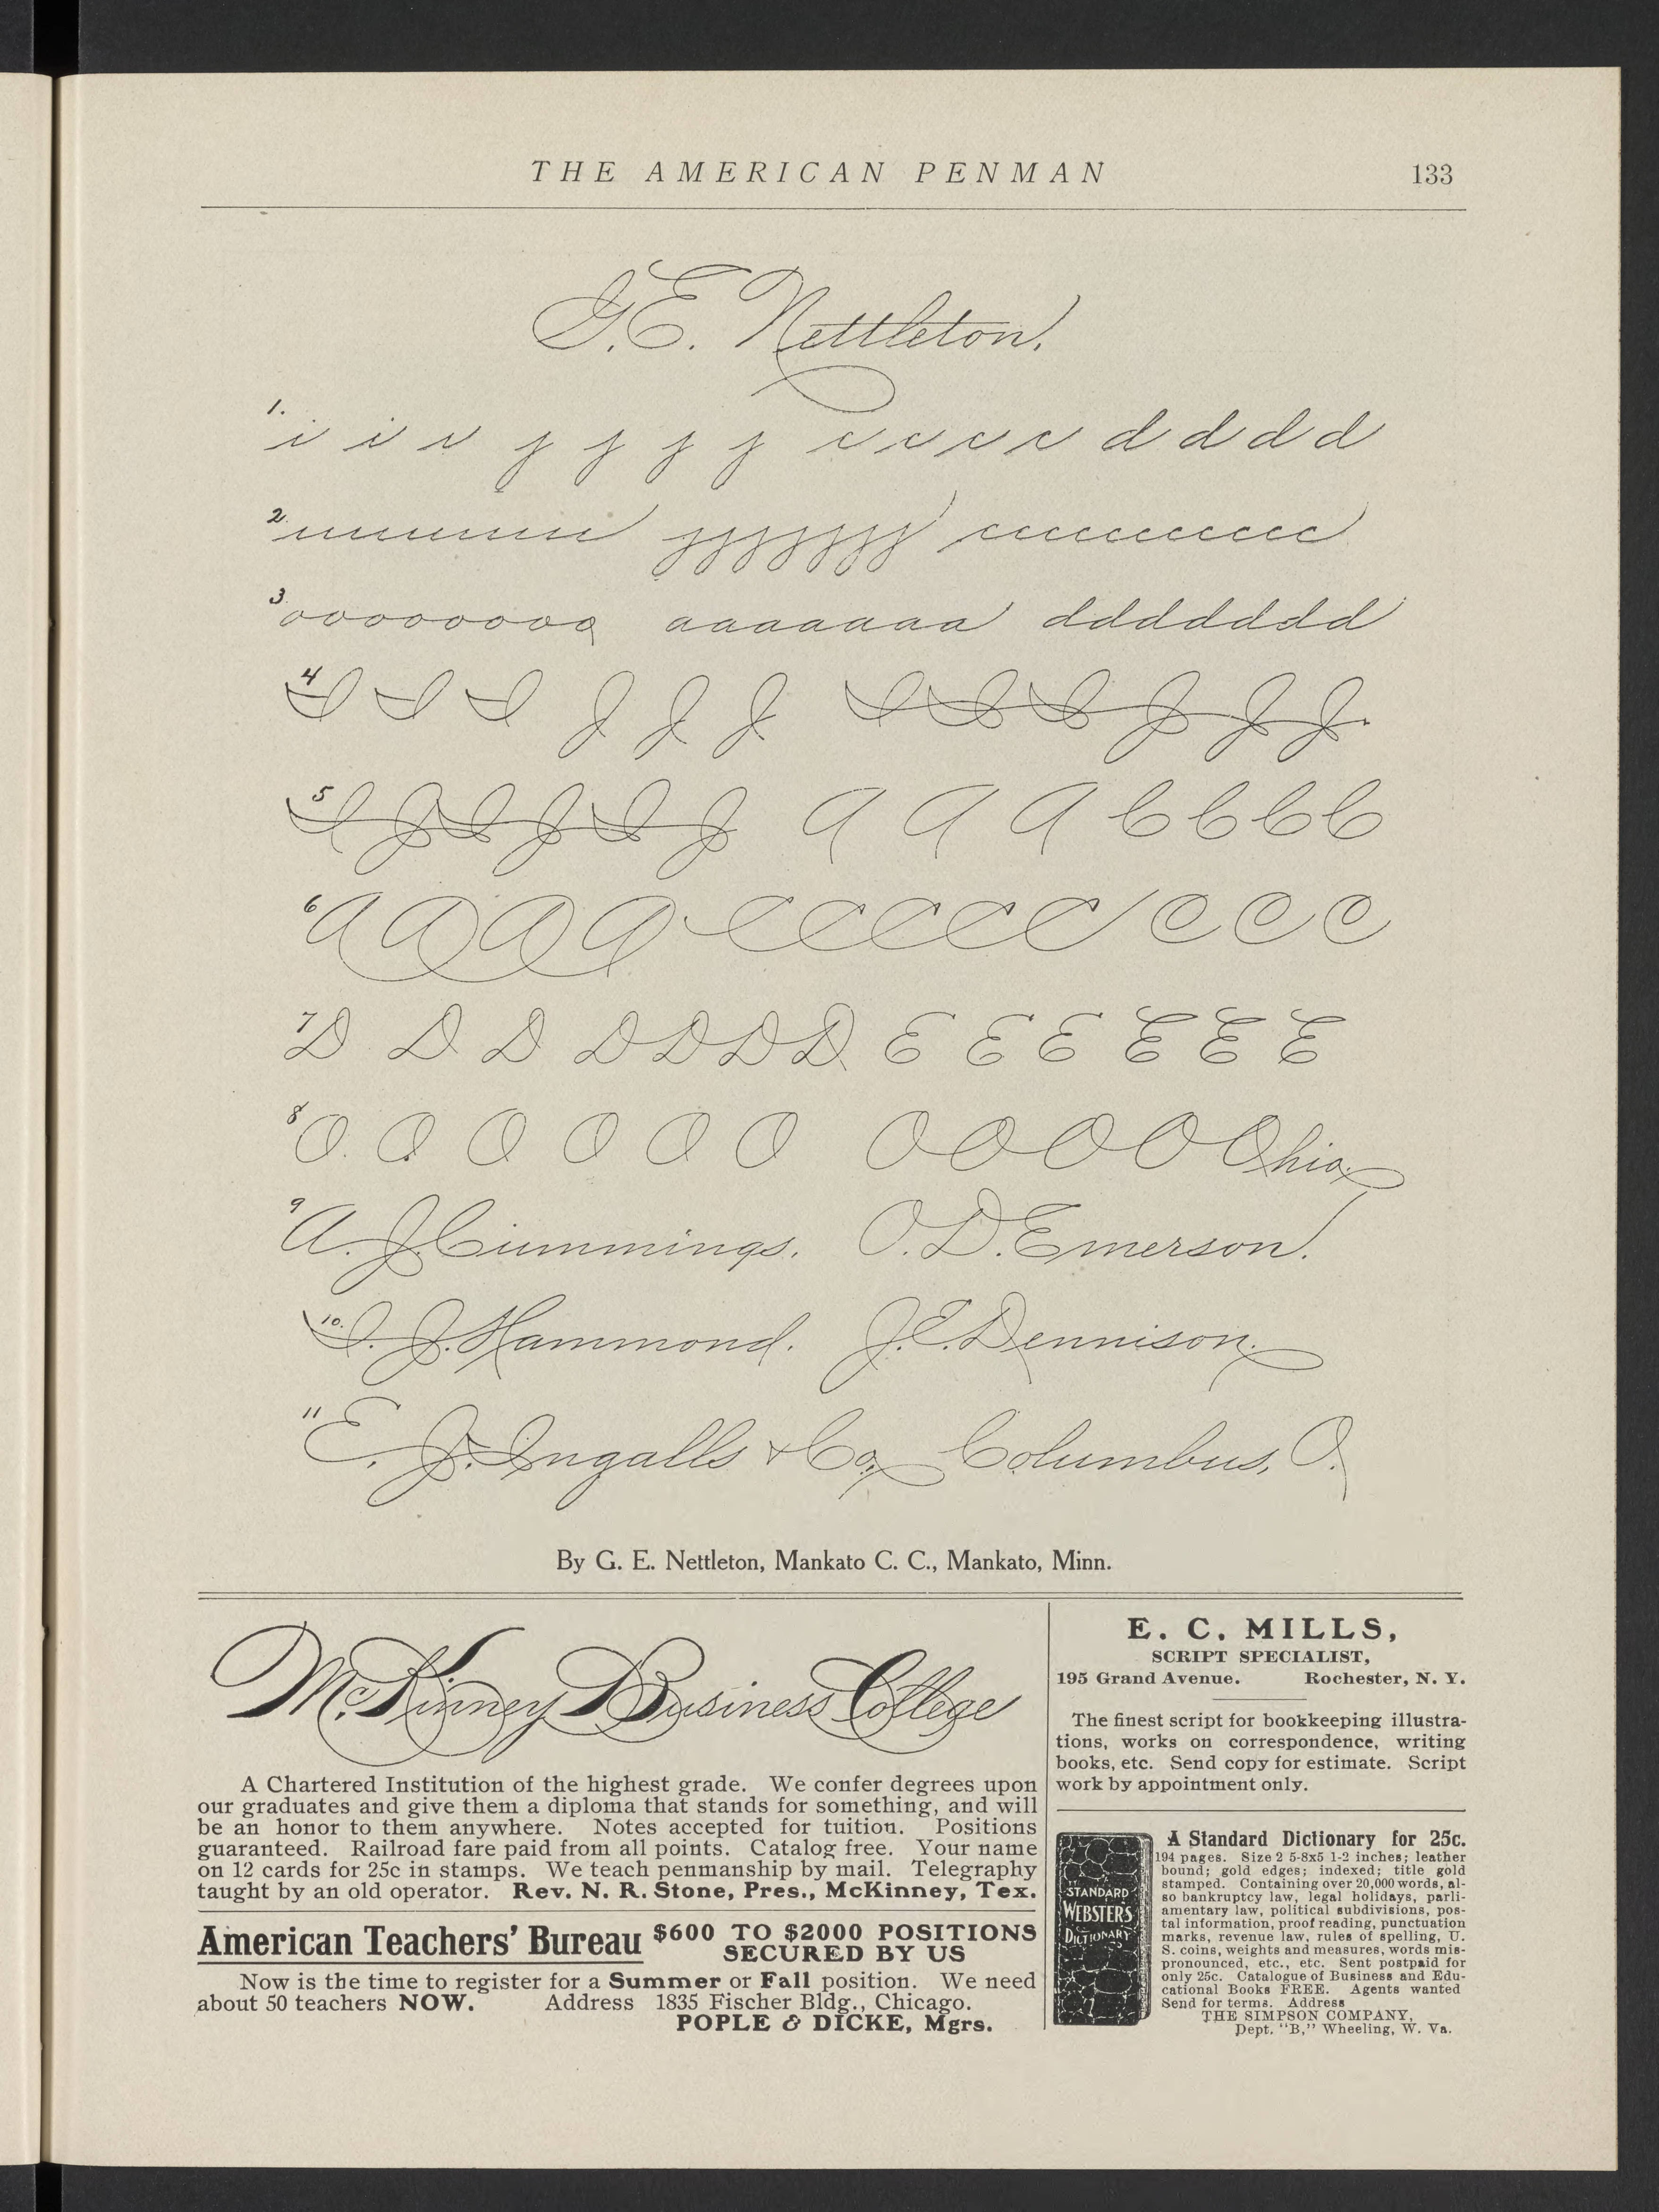 THE AMERICAN PENMAN 133
G. E. Nettleton.
1. i i i j j j j c c c c d d d d
2 uuuuuu jjjjjjj ccccccccc
3 oooooooo aaaaaaaa dddddddd
4 I I I J J J I I I J J J.
5 I J I J I J A A A C C C C
6 A A A A C C C C C C C C
7 D D D D D D D E E E E E E
8 O O O O O O O O O O Ohio.
9 A. J. Cummings. O. D. Emerson.
10. I. J. Hammond. J. E. Dennison.
11 E. J. Ingalls & Co., Columbus, O.
By G. E. Nettleton, Mankato C. C., Mankato, Minn.
McKinney Business College
A Chartered Institution of the highest grade. We confer degrees upon
our graduates and give them a diploma that stands for something, and will
be an honor to them anywhere. Notes accepted for tuition. Positions
guaranteed. Railroad fare paid from all points. Catalog free. Your name
on 12 cards for 25c in stamps. We teach penmanship by mail. Telegraphy
taught by an old operator. Rev. N. R. Stone, Pres., McKinney, Tex.
American Teachers' Bureau $600 TO $2000 POSITIONS
SECURED BY US
Now is the time to register for a Summer or Fall position. We need
about 50 teachers NOW. Address 1835 Fischer Bldg., Chicago.
POPLE & DICKE, Mgrs.
E. C. MILLS,
SCRIPT SPECIALIST,
195 Grand Avenue. Rochester, N. Y.
The finest script for bookkeeping illustra-
tions, works on correspondence, writing
books, etc. Send copy for estimate. Script
work by appointment only.
STANDARD
WEBSTERS
DICTIONARY
A Standard Dictionary for 25c.
194 pages. Size 2 5-8x5 1-2 inches; leather
bound; gold edges; indexed; title gold
stamped. Containing over 20,000 words, al-
so bankruptcy law, legal holidays, parli-
amentary law, political subdivisions, pos-
tal information, proof reading, punctuation
marks, revenue law, rules of spelling, U.
S. coins, weights and measures, words mis-
pronounced, etc., etc. Sent postpaid for
only 25c. Catalogue of Business and Edu-
cational Books FREE. Agents wanted
Send for terms. Address
THE SIMPSON COMPANY,
Dept. "B," Wheeling, W. Va.